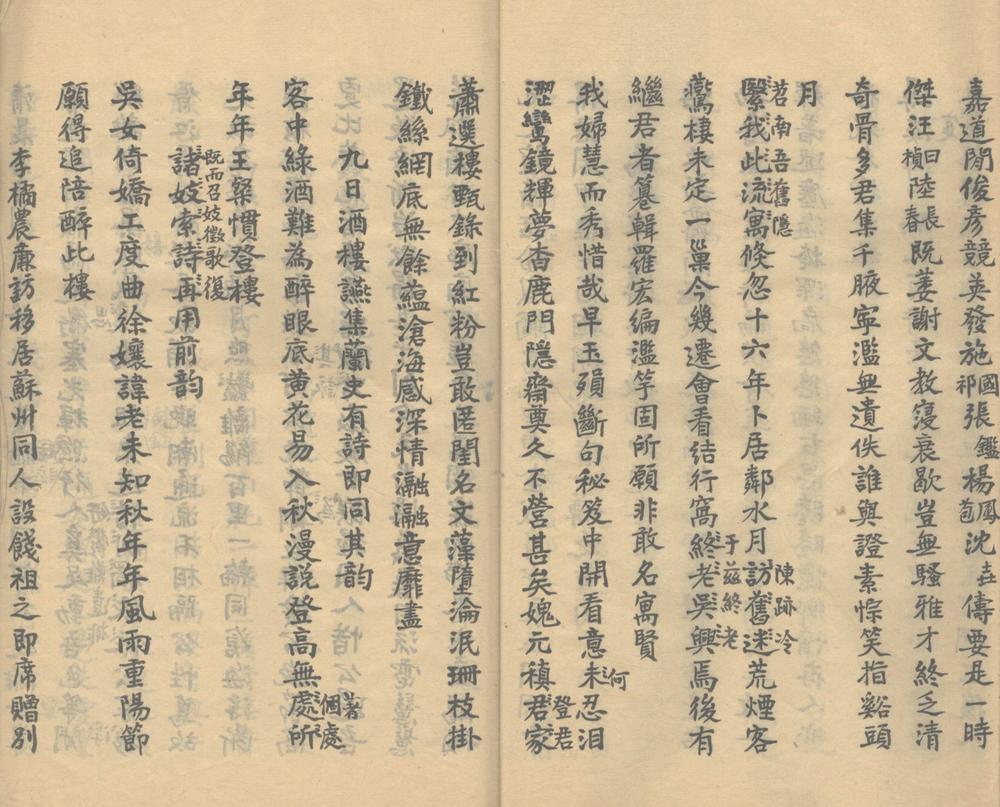 嘉道間俊彥競英發施國祁張鑑楊鳳苞沈垚傳要是一時
傑汪曰楨陸長春既萎謝文教寖衰歇豈無騷雅才終乏清
奇骨多君集千腋寧濫無遺佚誰與證素悰笑指谿頭
月
苕南吾舊隱
繄我此流寓倏忽十六年卜居鄰水月訪舊迷荒煙客
陳跡冷
鶯棲未定一巢今幾遷會看結行窩終老吳興焉後有
于茲終老
繼君者篹輯羅宏編濫竽固所願非敢名寓賢
我婦慧而秀惜哉早玉殞斷句秘笈中開看意未忍泪
何
澀鸞鏡輝夢杳鹿門隱齋奠久不營甚矣媿元稹君家
登君
蕭選樓甄錄到紅粉豈敢匿閨名文藻墮淪泯珊枝掛
鐵絲網底無餘蘊滄海感深情瀜瀜意靡盡
九日酒樓讌集蘭史有詩即同其韵
客中綠酒難為醉眼底黄花易入秋漫說登高無處所
著個處
年年王粲慣登樓
既而召妓徵歌復
諸妓索詩再用前韵
吳女倚嬌工度曲徐孃諱老未知秋年年風雨重陽節
願得追陪醉此樓
李橘農廉訪移居蘇州同人設餞祖之即席贈别